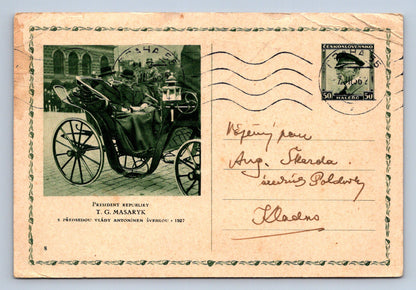 PRAHA
ČESKOSLOVENSKO
50 HALÉŘŮ 50
PRESIDENT REPUBLIKY
T. G. MASARYK
S PŘEDSEDOU VLÁDY ANTONÍNEM ŠVEHLOU · 1927
Vážený pan
Aug. Škarda
Kladno
8